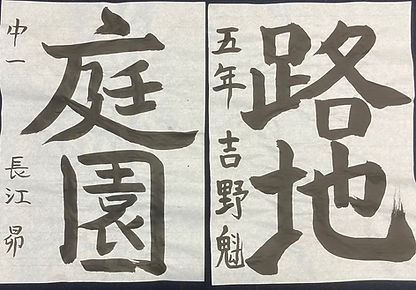 路地
五年 吉野魁
庭園
中一 長江昴